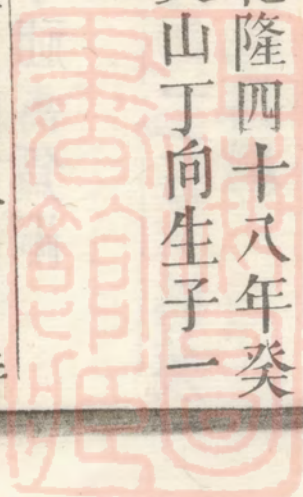 隆四十八年癸
山丁向生子一